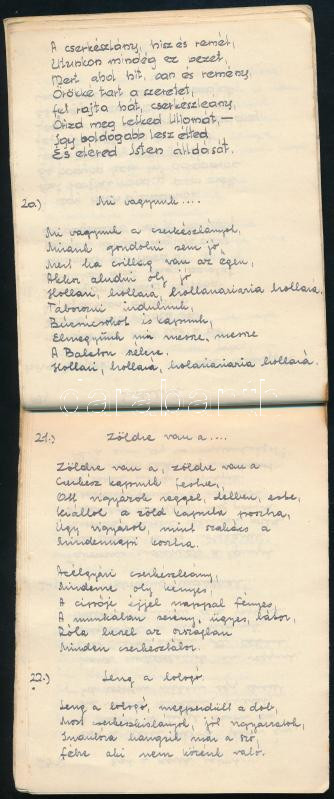 A cserkészlány, hisz és remél,
Utunkon mindég ez vezet,
Mert ahol hit, van és remény,
Örökké tart a szeretet,
fel rajta hát, cserkészleány,
Őrizd meg lelked liliomát,—
Így boldogabb lesz élted
És eléred Isten áldását.
20.) Mi vagyunk....
Mi vagyunk a cserkészlányok,
Miránk gondolni sem jó,
Mert ha csillag van az égen,
Akkor aludni oly jó
Hollári, hollará, hollarariaria hollará,
Táborozni indulunk,
Búcsúcsókot is kapunk,
Elmegyünk mi messze, messze
A Balaton szélére.
Hollári, hollará, holarariaria hollará.
21.) Zöldre van a....
Zöldre van a, zöldre van a
Cserkész kapunk festve,
Ott vigyázok reggel, délben, este,
Kiállok a zöld kapunk posztra,
Úgy vigyázok, mint szakács a
Mindennapi kosztra.
Acélgyári cserkészleány,
Mindene oly kényes,
A cipője éjjel nappal fényes,
A munkában serény, ügyes, bátor,
Róla beszél az országban
Minden cserkésztábor.
22.) Leng a lobogó
Leng a lobogó, megperdült a dob,
Most cserkészkislányok, jól vigyázzatok,
Indulóra hangzik már a szó,
Félre aki nem közénk való.
carabarat.hu